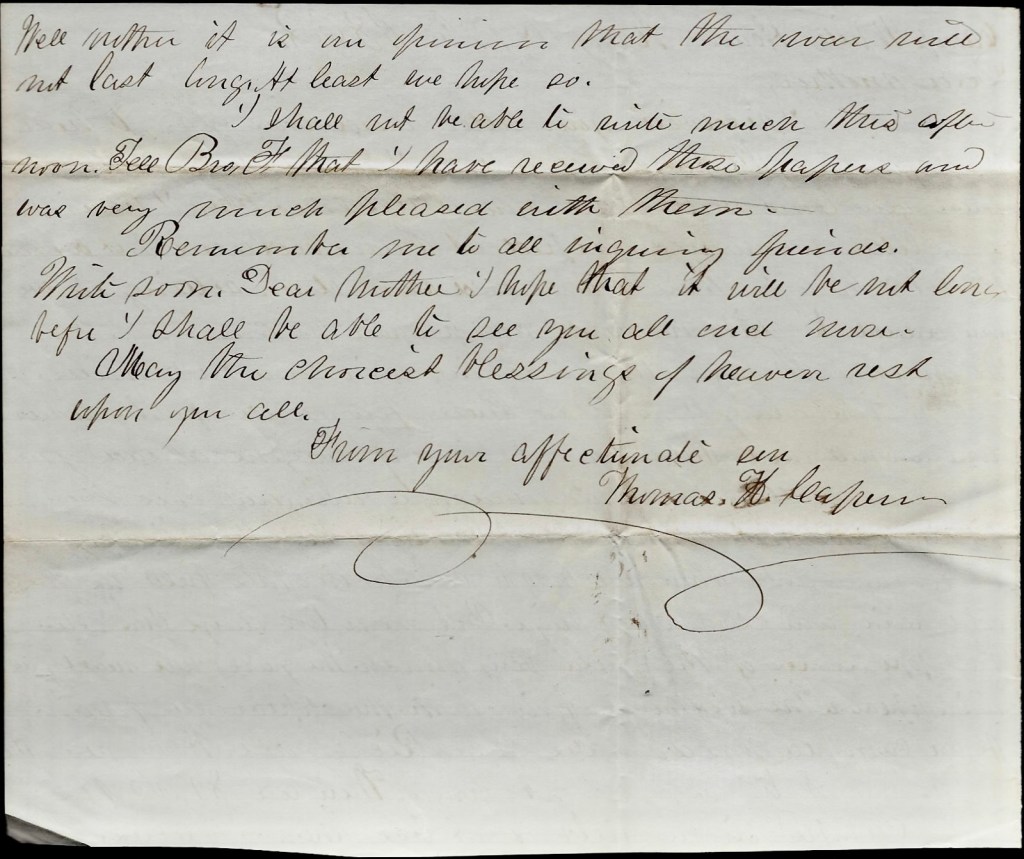 Well mother it is our opinion that the war will
not last long. At least we hope so.
I shall not be able to write much this after
noon. Tell Bro. F that I have received those papers and
was very much pleased with them.
Remember me to all inquiring friends.
Write soon. Dear Mother I hope that it will be not long
before I shall be able to see you all once more.
May the choicest blessings of heaven rest
upon you all.
From your affectionate son
Thomas. K.